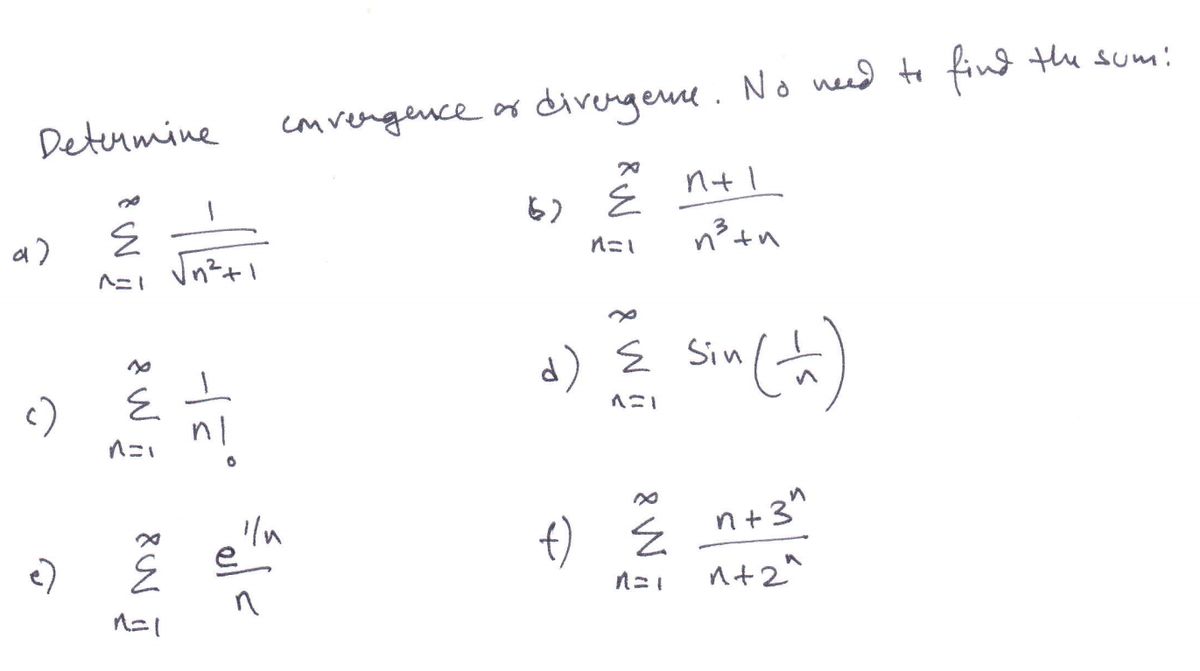 Determine convergence or divergence. No need to find the sum:
a) $\sum_{n=1}^{\infty} \frac{1}{\sqrt{n^2+1}}$
b) $\sum_{n=1}^{\infty} \frac{n+1}{n^3+n}$
c) $\sum_{n=1}^{\infty} \frac{1}{n!}$
d) $\sum_{n=1}^{\infty} \sin\left(\frac{1}{n}\right)$
e) $\sum_{n=1}^{\infty} \frac{e^{1/n}}{n}$
f) $\sum_{n=1}^{\infty} \frac{n+3^n}{n+2^n}$